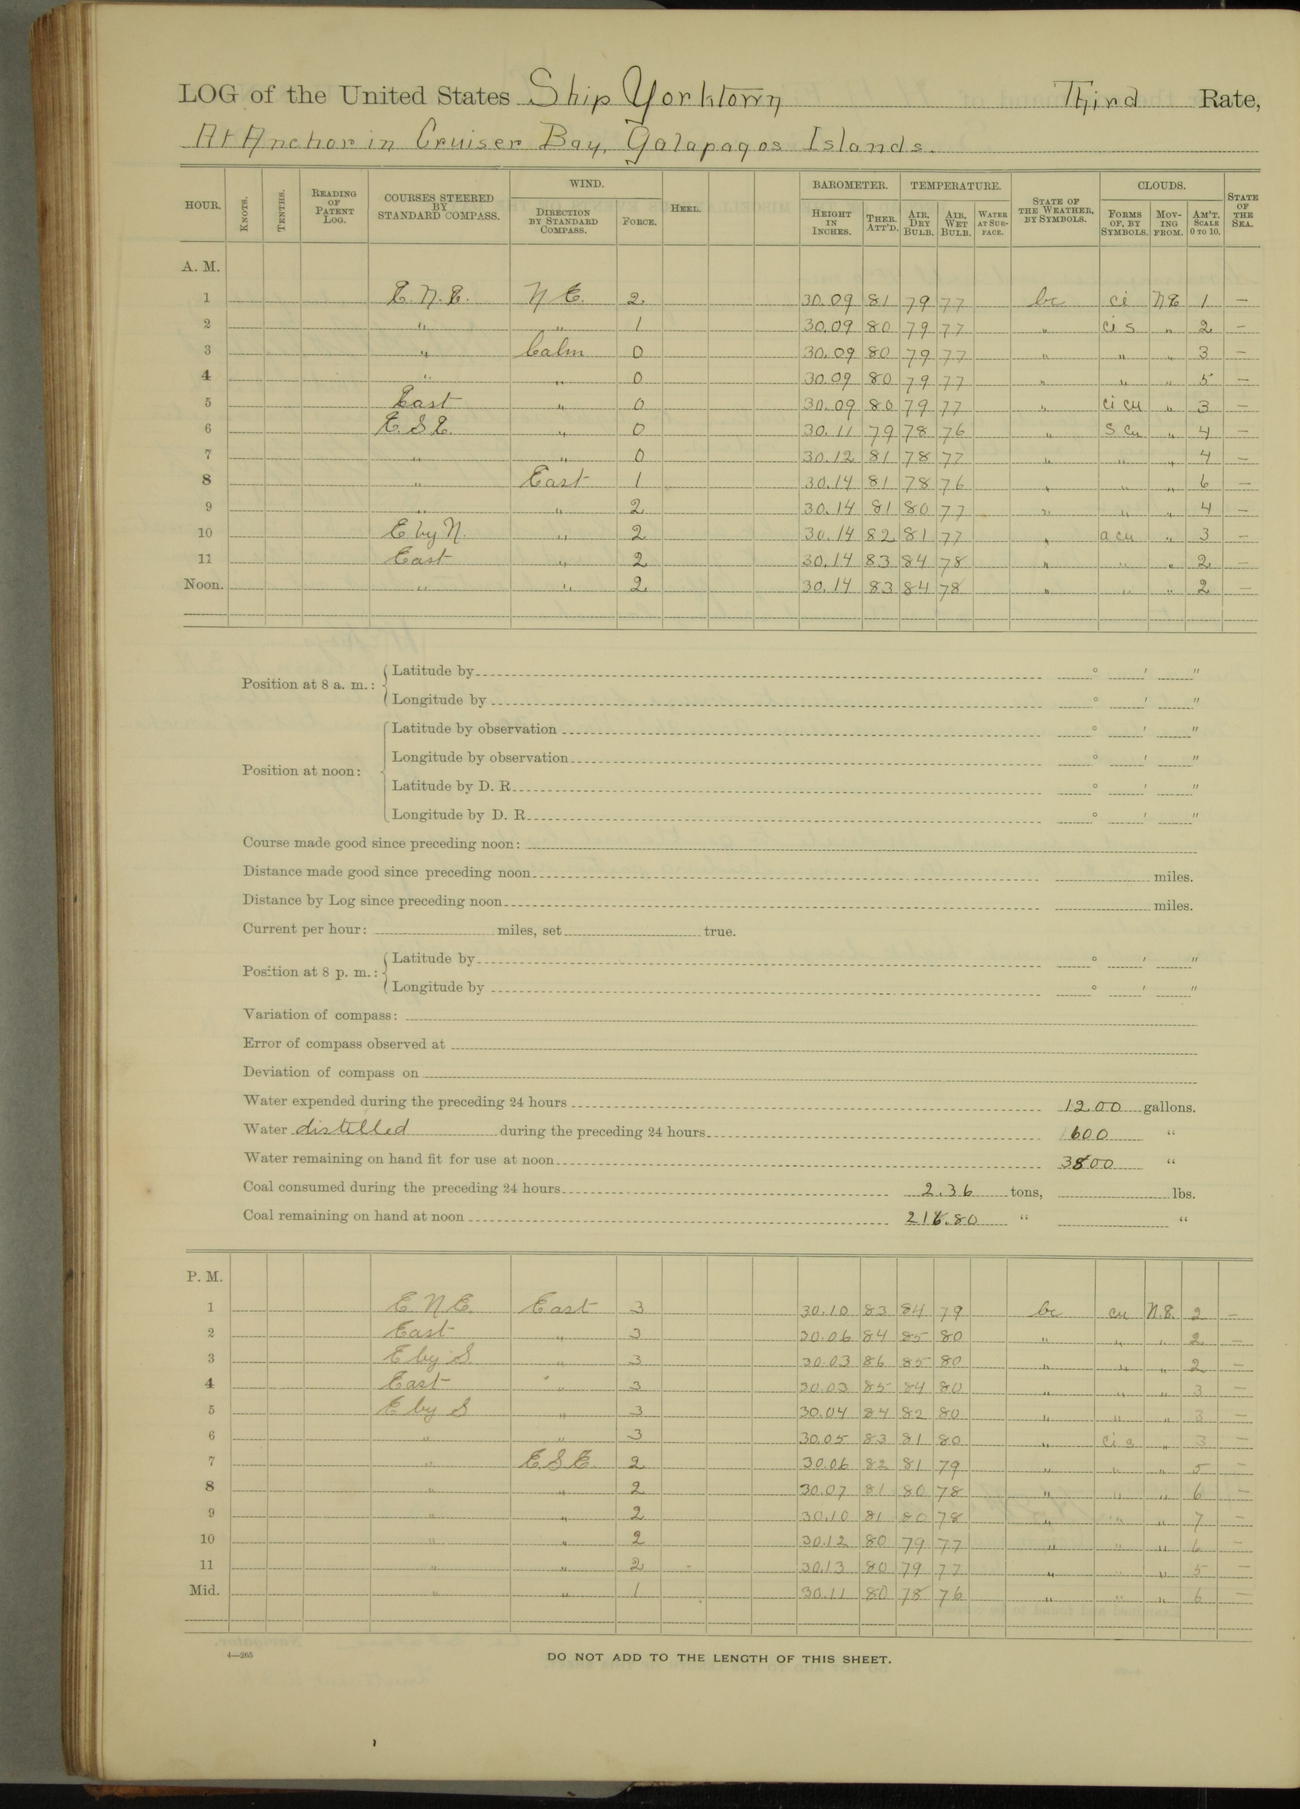 LOG of the United States Ship Yorktown Third Rate,
At Anchor in Cruiser Bay, Galapagos Islands.
HOUR. KNOTS. TENTHS. READING OF PATENT LOG. COURSES STEERED BY STANDARD COMPASS. WIND. DIRECTION BY STANDARD COMPASS. FORCE. HEEL. BAROMETER. HEIGHT IN INCHES. THER. ATT'D. TEMPERATURE. AIR, DRY BULB. AIR, WET BULB. WATER AT SURFACE. STATE OF THE WEATHER, BY SYMBOLS. CLOUDS. FORMS OF, BY SYMBOLS. MOVING FROM. AM'T. SCALE 0 TO 10. STATE OF THE SEA.
A. M.
1 E.N.E. N E. 2. 30.09 81 79 77 bc ci N E 1 —
2 " " 1 30.09 80 79 77 " ci s " 2 —
3 " Calm 0 30.09 80 79 77 " " " 3 —
4 " " 0 30.09 80 79 77 " " " 5 —
5 East " 0 30.09 80 79 77 " ci cu " 3 —
6 E.S.E. " 0 30.11 79 78 76 " S cu " 4 —
7 " " 0 30.12 81 78 77 " " " 4 —
8 " East 1 30.14 81 78 76 " " " 6 —
9 " " 2 30.14 81 80 77 " " " 4 —
10 E by N. " 2 30.14 82 81 77 " a cu " 3 —
11 East " 2 30.14 83 84 78 " " " 2 —
Noon. " " 2 30.14 83 84 78 " " " 2 —
Position at 8 a. m.: Latitude by ° ′ ″
Longitude by ° ′ ″
Position at noon: Latitude by observation ° ′ ″
Longitude by observation ° ′ ″
Latitude by D. R. ° ′ ″
Longitude by D. R. ° ′ ″
Course made good since preceding noon:
Distance made good since preceding noon miles.
Distance by Log since preceding noon miles.
Current per hour: miles, set true.
Position at 8 p. m.: Latitude by ° ′ ″
Longitude by ° ′ ″
Variation of compass:
Error of compass observed at
Deviation of compass on
Water expended during the preceding 24 hours 1200 gallons.
Water distilled during the preceding 24 hours 1600 "
Water remaining on hand fit for use at noon 3800 "
Coal consumed during the preceding 24 hours 2.36 tons, lbs.
Coal remaining on hand at noon "  "
P. M.
1 E N E. East 3 30.10 83 84 79 bc cu N.E. 2 —
2 East " 3 30.06 84 85 80 " " " 2 —
3 E by S " 3 30.03 86 85 80 " " " 2 —
4 East " 3 30.03 85 84 80 " " " 3 —
5 E by S " 3 30.04 84 82 80 " " " 3 —
6 " " 3 30.05 83 81 80 " ci s " 3 —
7 " E S E. 2 30.06 82 81 79 " " " 5 —
8 " " 2 30.07 81 80 78 " " " 6 —
9 " " 2 30.10 81 80 78 " " " 7 —
10 " " 2 30.12 80 79 77 " " " 6 —
11 " " 2 30.13 80 79 77 " " " 5 —
Mid. " " 1 30.11 80 78 76 " " " 6 —
4—265
DO NOT ADD TO THE LENGTH OF THIS SHEET.